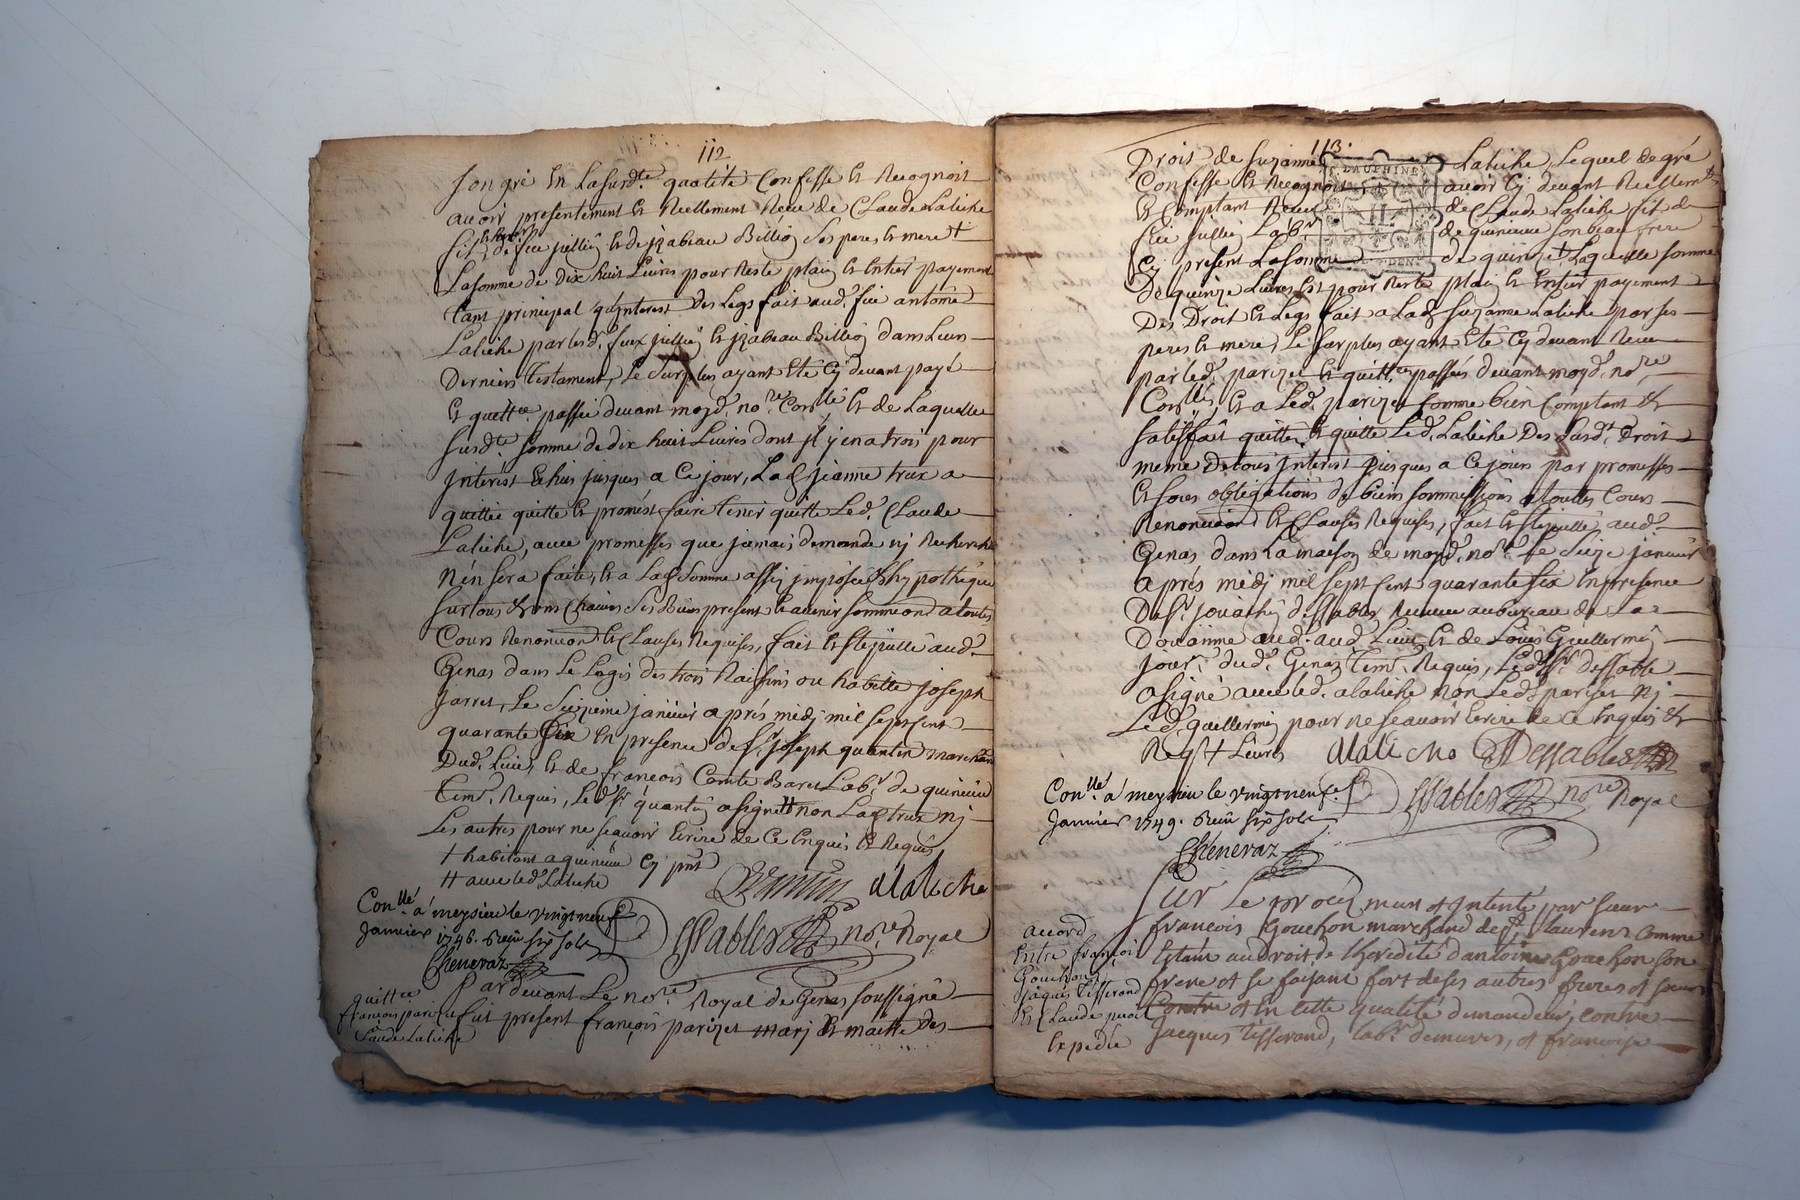 112
son gré en lasusdte. qualité confesse et recognoit
avoir presentement et reellement receu de Claude Laliche
fils de feu jullien et de jzabeau Billion ses pere et mere +
la somme de dix huit livres pour reste plain et entier payement
tant principal qu'interest des legs fait aud. feu antoine
Laliche par lesd. feux jullien et jzabeau Billion dans leurs
derniers testament, le surplus ayant eté cy devant payé
et quittce. passée devant moyd. nore. conllé et de laquelle
susdte. somme de dix huit livres dont jl y en a trois pour
jnterest echus jusques a ce jour, lad. jeanne trux a
quittée quitte et promést faire tenir quitte led. Claude
Laliche, avec promesses que jamais demande nj recherche
n'en sera faite, et a lad. somme assis jmposée et hypothéquée
sur tous et uns chaicuns ses biens present et avenir sommis ond a toutes
cours renonciond. et clauses requises, fait et stipullé aud.
Genas dans le logis des trois raisins ou habitte joseph
jarret, le seizieme janvier après midj mil sept cent
quarante six en presence de sr. joseph quantin marchand
dud. lieu, et de francois Comte Baret labr. de quincieu
temr. requis, led. sr. quantin a signé ++ non lad. trux nj
les autres pour ne scavoir ecrire de ce enquis et requis
+ habitant a quincieu cy pnt
++ avec led. Laliche
quantin alaliche
Conllé. á meysieu le vingt neuf
Janvier 1746. Reçu six sols
Cheneraz
Dessables nore. Royal
quittce
francois parizet
Claude Laliche
Par devant le nore. Royal de Genas soussigné
fut present françois parizet marj et maitre des
113.
Droit de suzanne Laliche, lequel de gré
confesse et recognoit avoir cy devant reellemt.
et comptant receu de Claude Laliche fils de
feu jullien labr. de quincieu son beau frere
cy present la somme de quinze + laquelle somme
de quinze livres est pour reste plain et entier payement
des droit et legs fait a lad. suzanne Laliche par ses
peres et mere, le surplus ayant eté cy devant receu
par led. parizet et quittce. passées devant moyd. nore.
conllés, et a led. parizet comme bien comptant et
satisfait quitté et quitte led. Laliche des susd. droit
meme de tous jnterest jusques a ce jours par promesses
et sous obligations de biens sommissions a touttes cours
renonciond. et clauses requises, fait et stipullé, aud.
Genas dans la maison de moyd. nore. le seize janvier
aprés midj mil sept cent quarante six en presence
de sr. jonathy dessables receveur au bureau de la
Douanne aud. lieu et de Louis Guillermin
jour. dud. Genas temr. requis, led. sr. dessable
a signé avec led. alaliche non led. parizet nj
led. guillermin pour ne scavoir ecrire de ce enquis et
reqs + livres alaliche Dessables
DAUPHINE
Conllé. á meysieu le vingt neuf
Janvier 1749. Reçu six sols
Cheneraz
Dessables nore. Royal
accord
Entre françois
Gouchon
Jaques Tisserand
et Claude
Expedié
Sur le procéz meu et intenté par sieur
francois Gouchon marchand de st. laurens comme
etant au droit de lheredité d'antoine Gouchon son
frere et se faisant fort de ses autres freres et sœurs
et en cette qualité demandeur, contre
Jacques Tisserand, labr. demures, et francoise